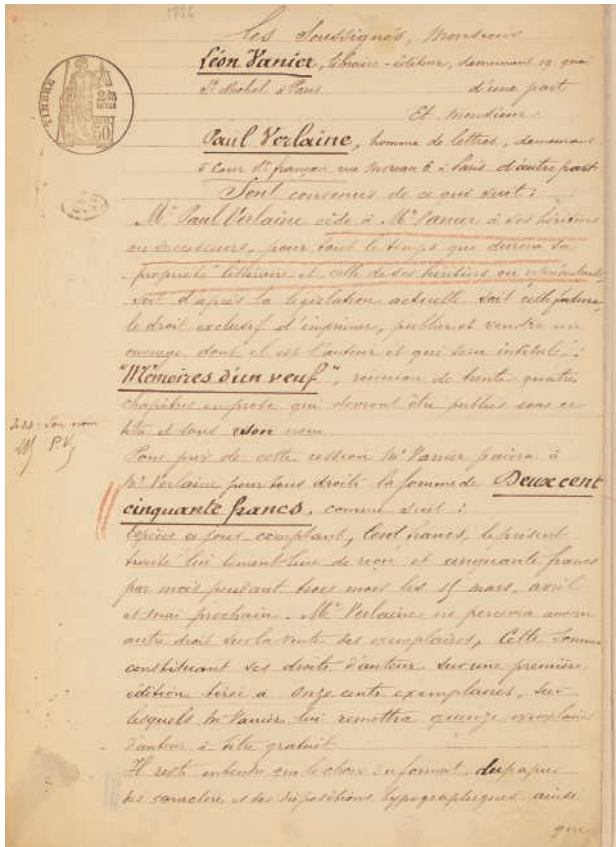 1886
Les Soussignés, Monsieur
Léon Vanier, libraire-éditeur, demeurant 19, quai
St Michel à Paris d'une part
Et Monsieur
Paul Verlaine, homme de lettres, demeurant
5 Cour St françois rue Moreau 6 à Paris d'autre part
Sont convenus de ce qui suit :
Mr Paul Verlaine cède à Mr Vanier à ses héritiers
ou successeurs, pour tout le temps que durera sa
propriété littéraire et celle de ses héritiers ou représentants
soit d'après la législation actuelle soit celle future,
le droit exclusif d'imprimer, publier et vendre un
ouvrage dont il est l'auteur et qui sera intitulé :
"Mémoires d'un veuf", réunion de trente quatre
chapitres en prose qui devront être publiés sous ce
titre et sous son nom.
son nom
P.V.
Pour prix de cette cession Mr Vanier paiera à
Mr Verlaine pour tous droits la somme de Deux cent
cinquante francs, comme suit :
Espèces ce jour comptant, Cent francs, le présent
traité lui tenant lieu de reçu et cinquante francs
par mois pendant trois mois les 15 mars, avril
et mai prochain. Mr Verlaine ne percevra aucun
autre droit sur la vente des exemplaires, Cette somme
constituant ses droits d'auteur sur une première
édition tirée à onze cents exemplaires, sur
lesquels Mr Vanier lui remettra quinze exemplaires
d'auteur à titre gratuit
Il reste entendu que le choix du format, du papier
des caractères et des dispositions typographiques ainsi
que
TIMBRE
50